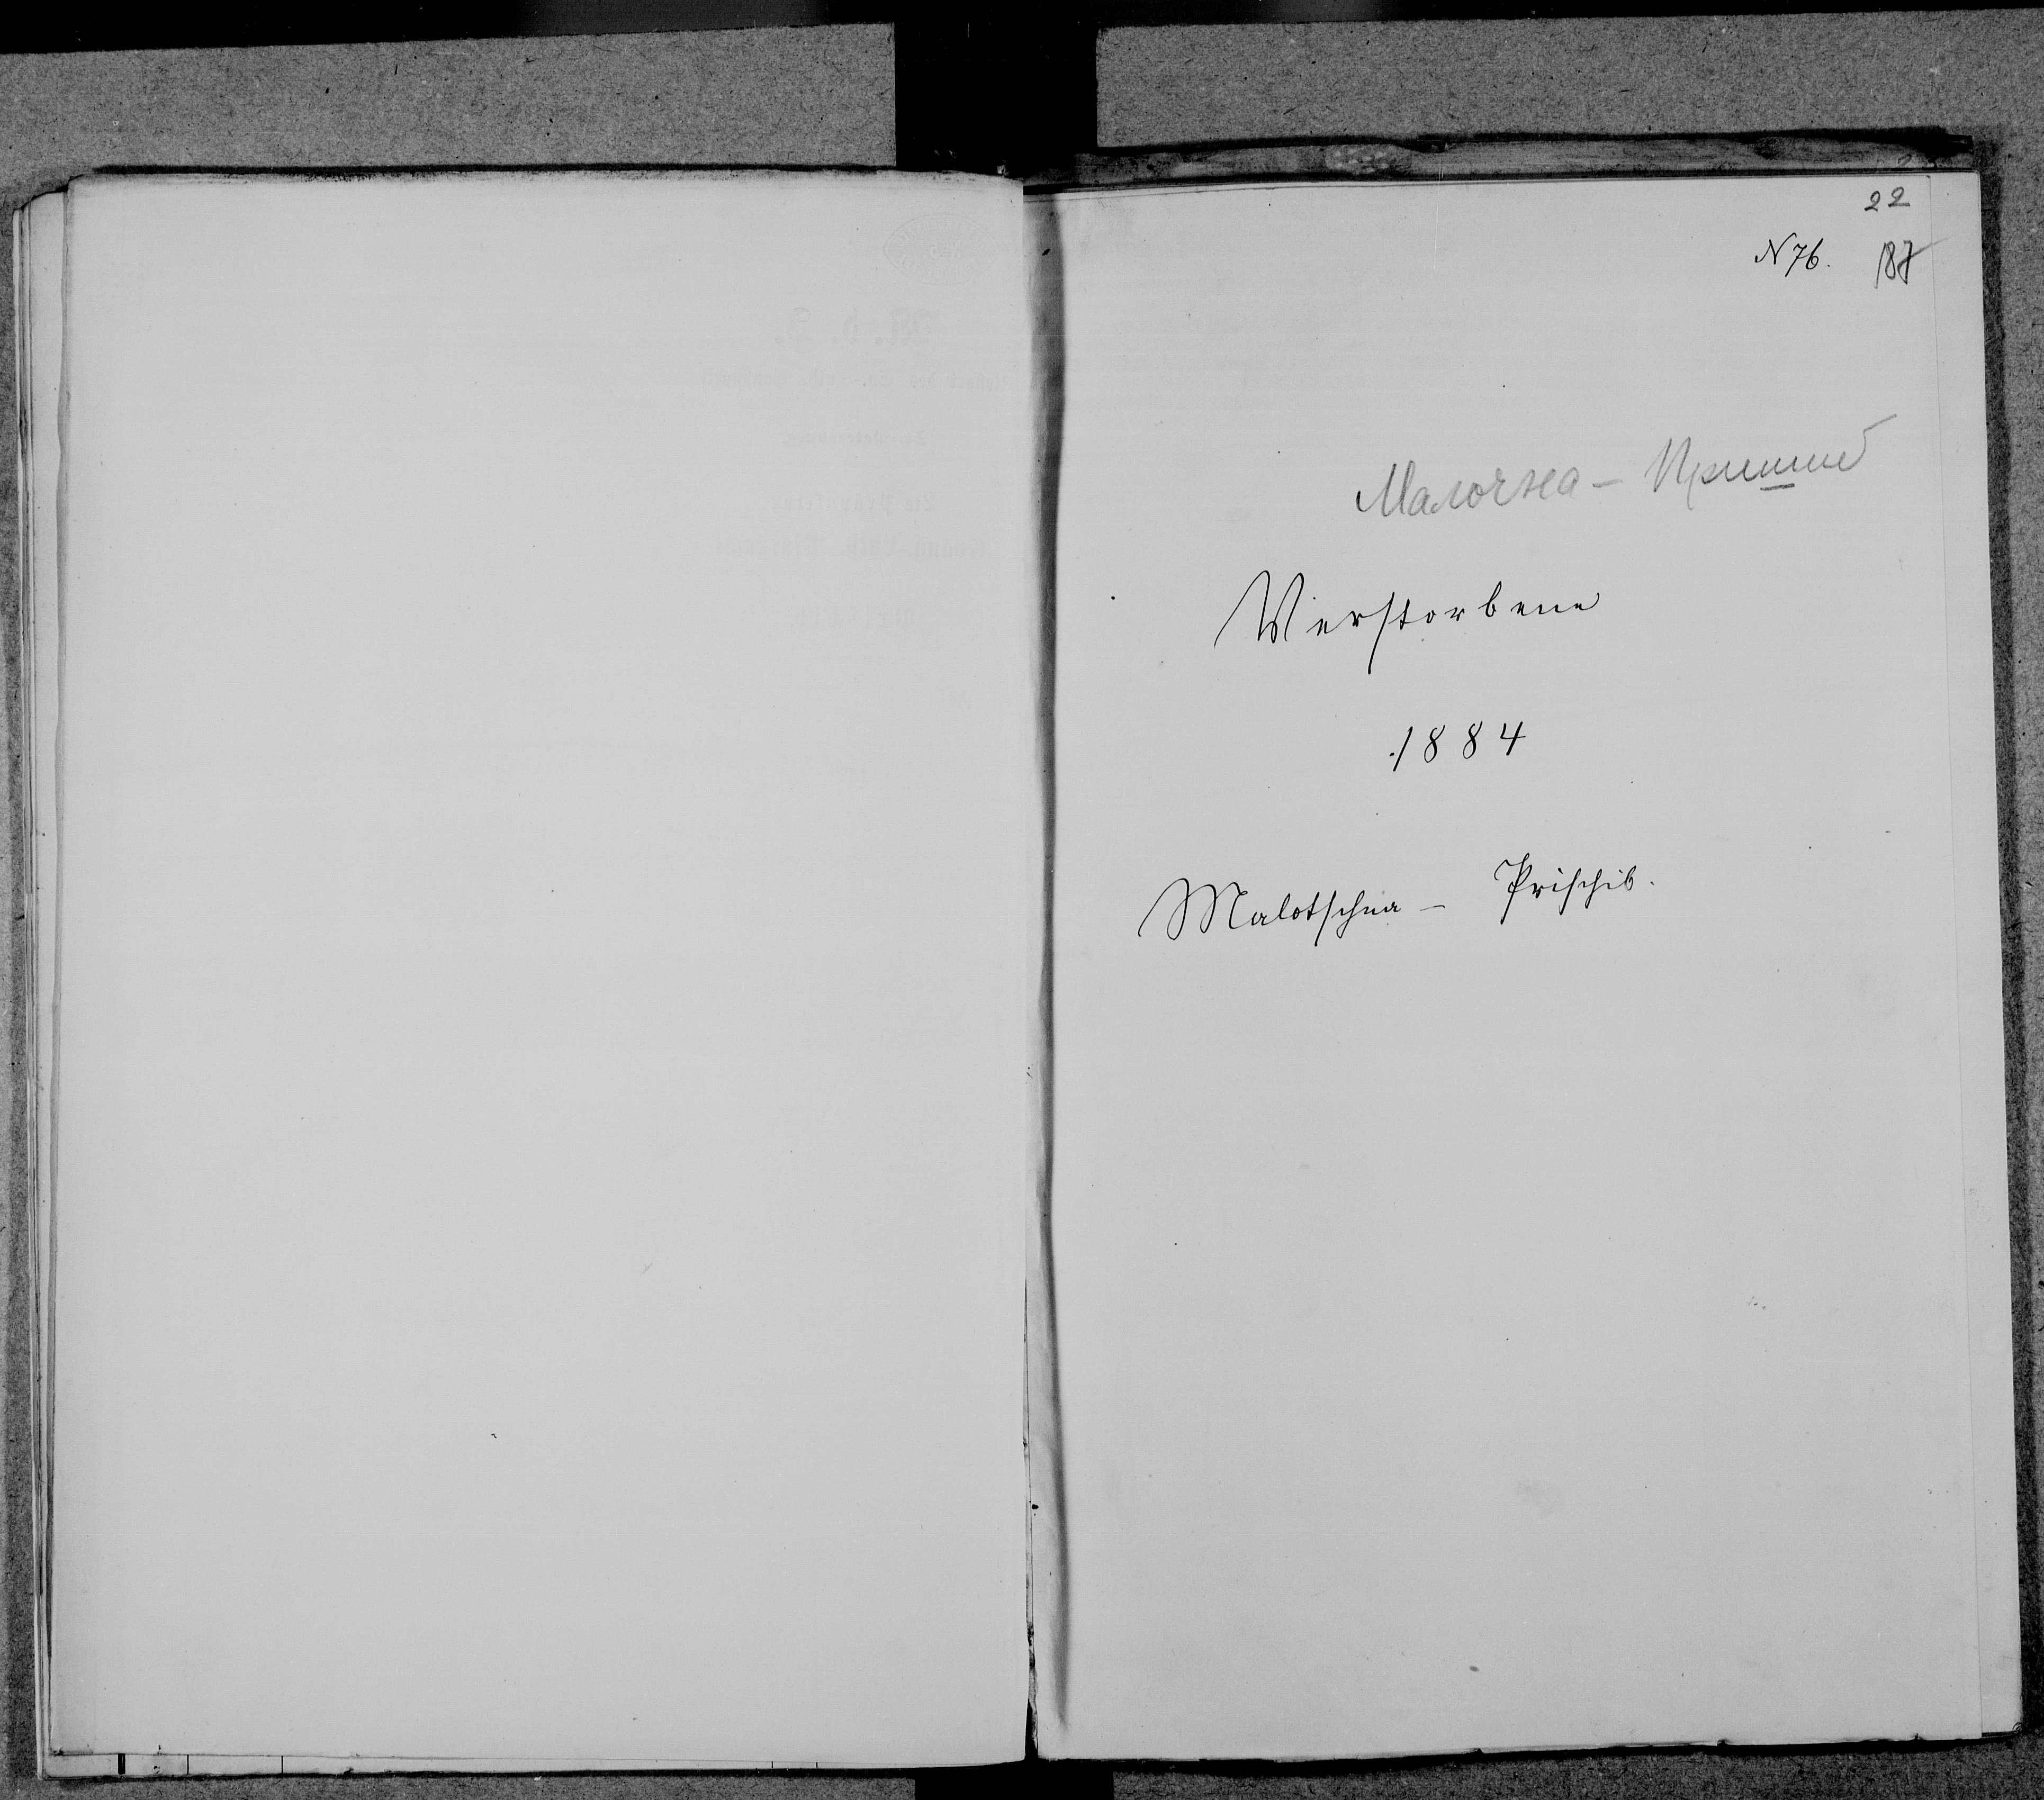 22
N 76. 187
Малочна - Пришиб
Verstorbene
1884
Malotschna - Prischib.